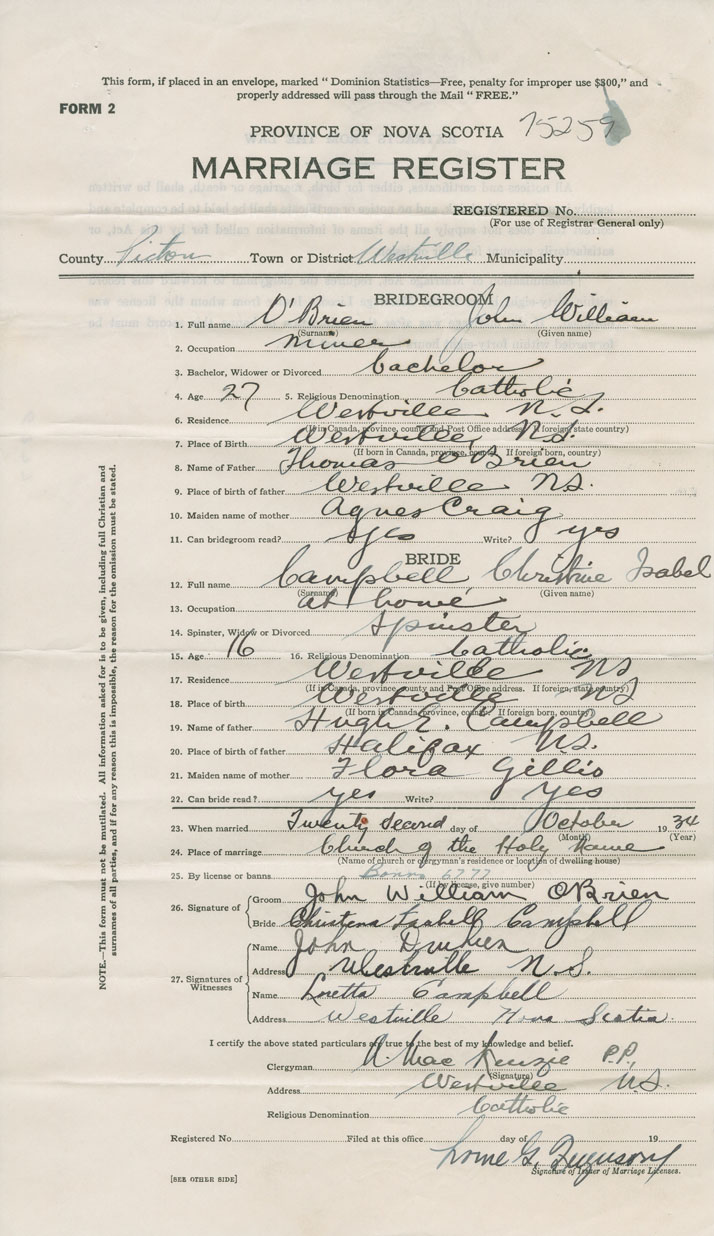 This form, if placed in an envelope, marked “ Dominion Statistics—Free, penalty for improper use $300,” and
properly addressed will pass through the Mail “ FREE.”
FORM 2
PROVINCE OF NOVA SCOTIA 75259
MARRIAGE REGISTER
REGISTERED No.
(For use of Registrar General only)
County Pictou Town or District Westville Municipality
BRIDEGROOM
1. Full name O'Brien John William
(Surname) (Given name)
2. Occupation miner
3. Bachelor, Widower or Divorced bachelor
4. Age 27 5. Religious Denomination Catholic
6. Residence Westville N.S.
(If in Canada, province, county and Post Office address. If foreign, state country)
7. Place of Birth Westville, N.S.
(If born in Canada, province, county. If foreign born, country)
8. Name of Father Thomas O'Brien
9. Place of birth of father Westville NS.
10. Maiden name of mother Agnes Craig
11. Can bridegroom read? yes Write? yes
BRIDE
12. Full name Campbell Christine Isabel
(Surname) (Given name)
13. Occupation at home
14. Spinster, Widow or Divorced Spinster
15. Age 16 16. Religious Denomination Catholic
17. Residence Westville NS
(If in Canada, province, county and Post Office address. If foreign, state country)
18. Place of birth Westville NS
(If born in Canada, province, county. If foreign born, country)
19. Name of father Hugh E. Campbell
20. Place of birth of father Halifax NS.
21. Maiden name of mother Flora Gillis
22. Can bride read? yes Write? yes
23. When married Twenty Second day of October 1934
(Month) (Year)
24. Place of marriage Church of the Holy Name
(Name of church or clergyman's residence or location of dwelling house)
25. By license or banns Banns 6777
(If by license, give number)
26. Signature of Groom John William OBrien
Bride Christena Isabell Campbell
27. Signatures of Witnesses
Name John
Address Westville N.S.
Name Loretta Campbell
Address Westville Nova Scotia
I certify the above stated particulars are true to the best of my knowledge and belief.
Clergyman A. MacKenzie P.P.
(Signature)
Address Westville N.S.
Religious Denomination Catholic
Registered No. Filed at this office day of 19
Lorne G. Ferguson
Signature of Issuer of Marriage Licenses.
[SEE OTHER SIDE]
NOTE.—This form must not be mutilated. All information asked for is to be given, including full Christian and
surnames of all parties, and if for any reason this is impossible, the reason for the omission must be stated.